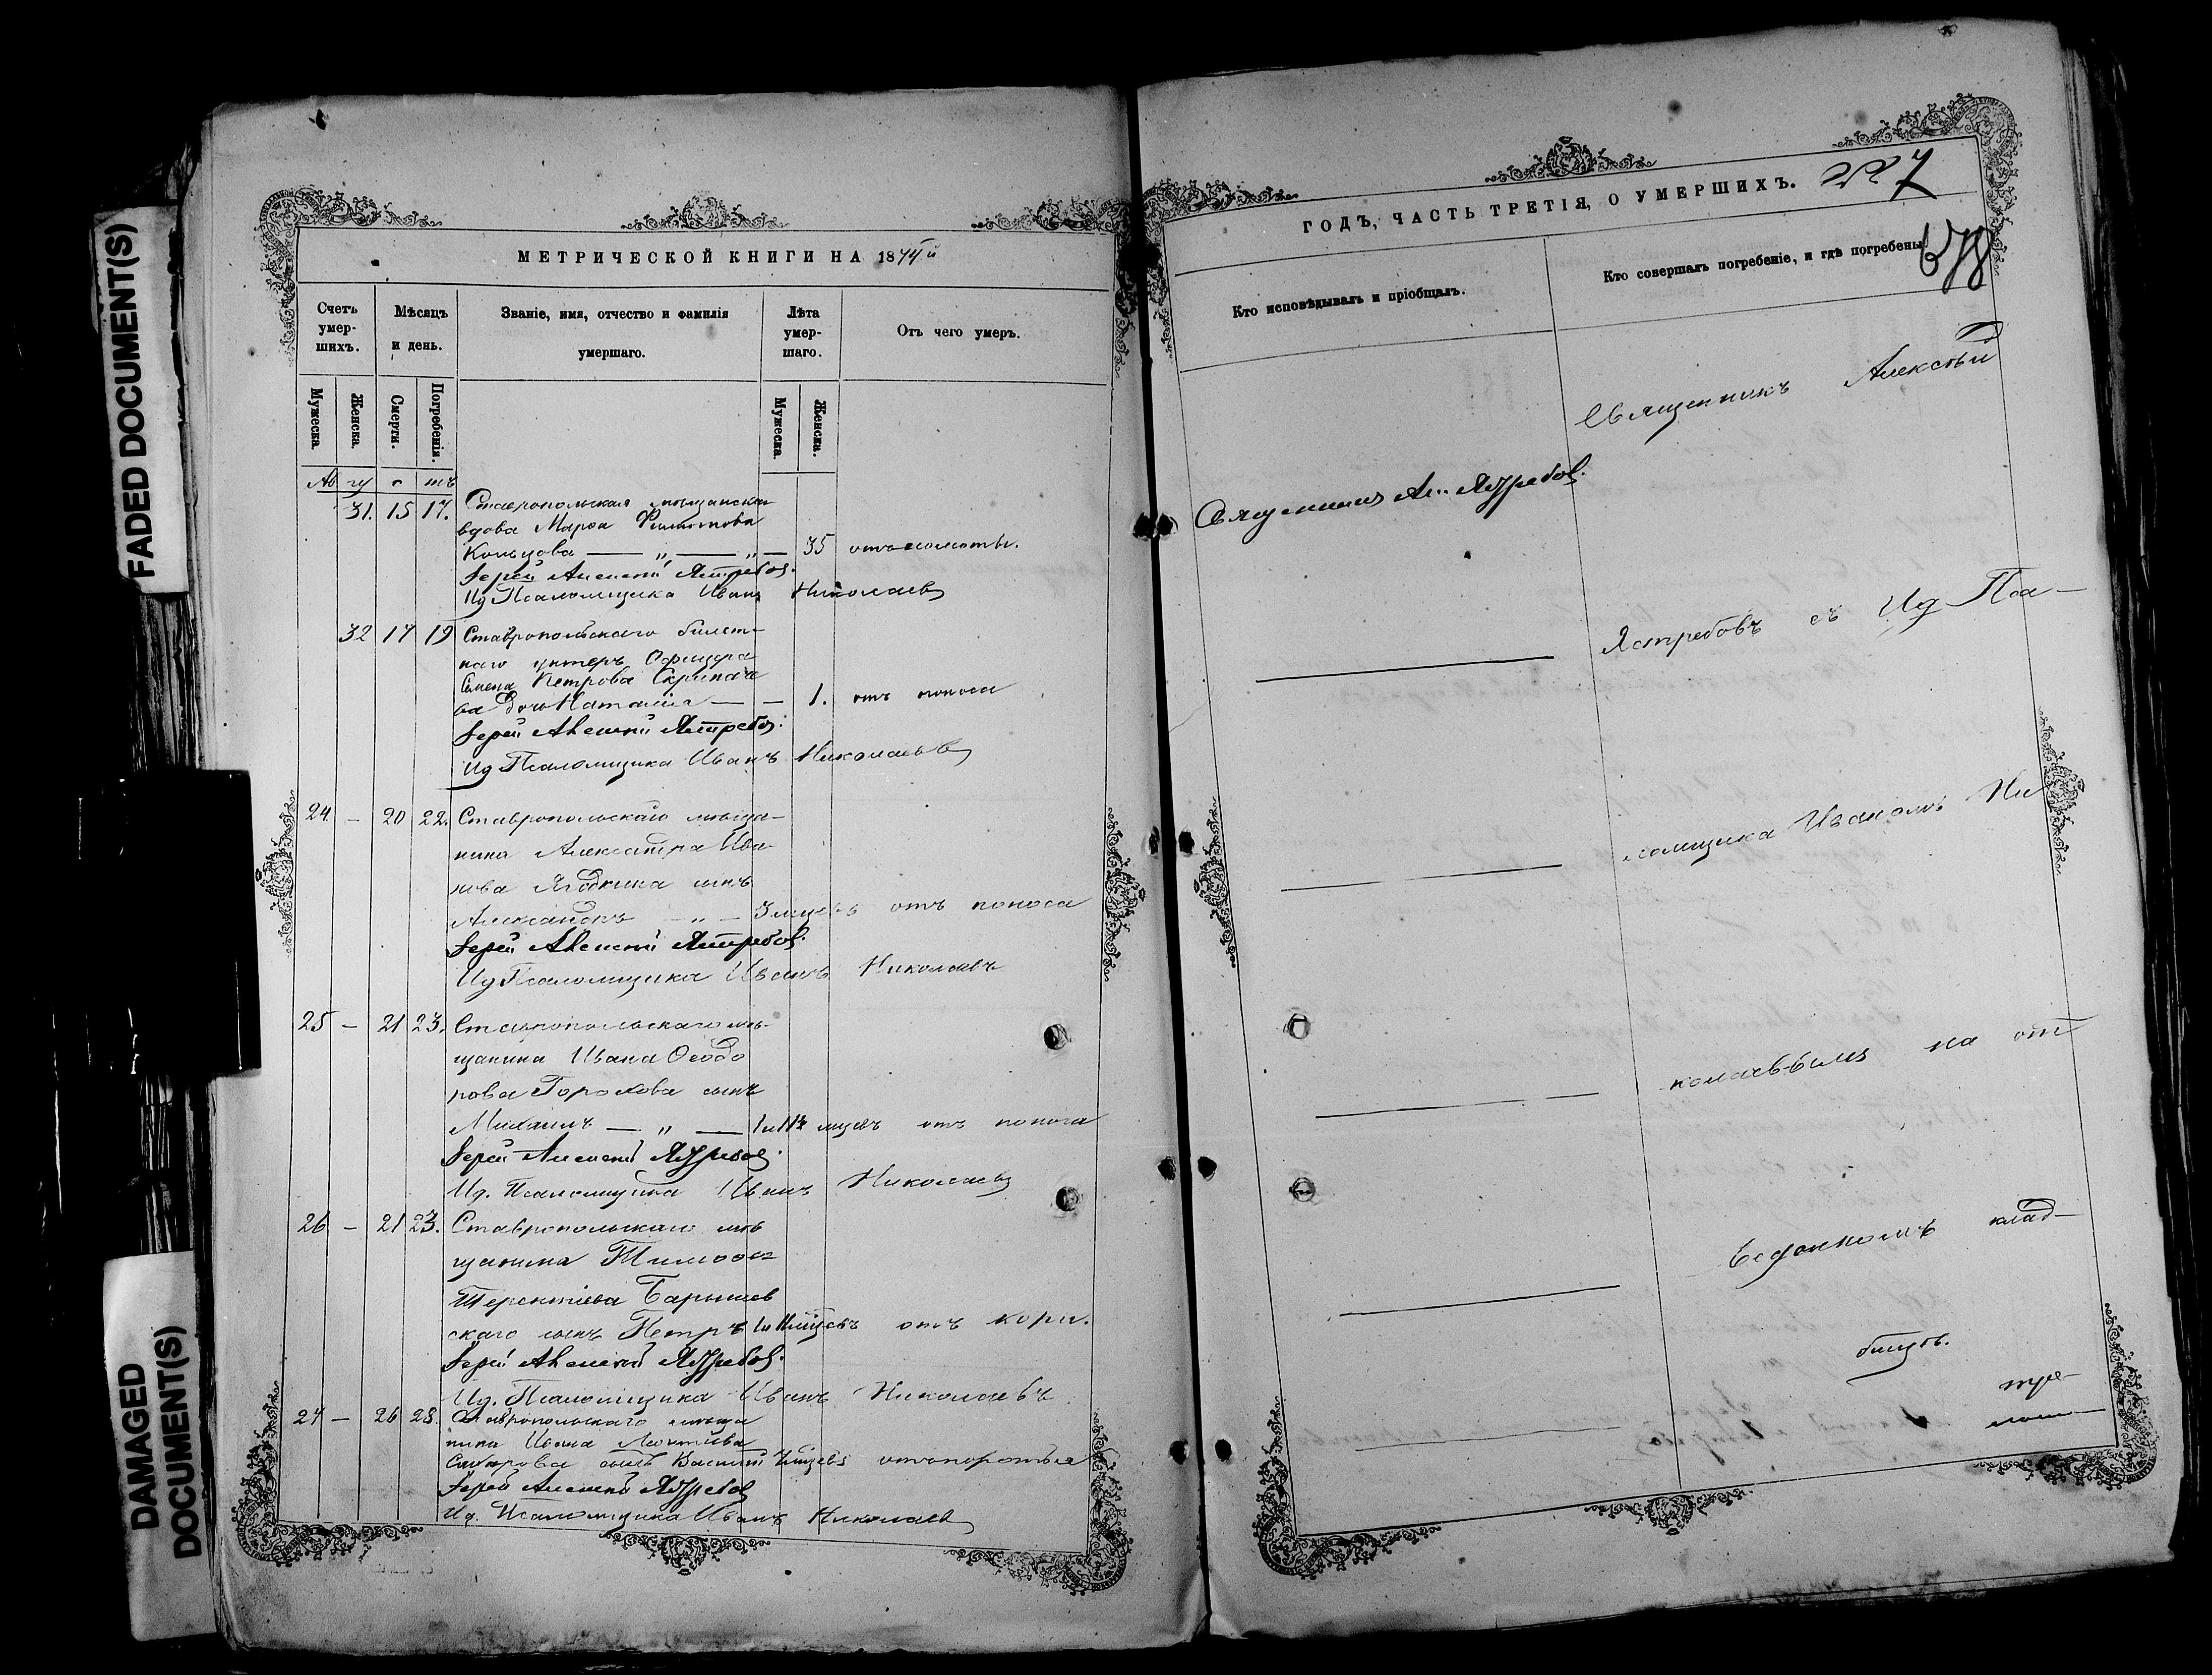 FADED DOCUMENT(S)
DAMAGED
DOCUMENT(S)
МЕТРИЧЕСКОЙ КНИГИ НА 18
Счетъ умер-шихъ.
Мѣсяцъ и день.
Званіе, имя, отчество и фамилія умершаго.
Лѣта умер-шаго.
Отъ чего умеръ.
Мужеска.
Женска.
Смерти.
Погребенія.
Мужеска.
Женска.
Августъ
31. 15 17. Ставропольская мѣщанская
вдова Марѳа
Кольцова — „ — „ — 35
Іерей Алексѣй Ястребовъ.
Ид Псаломщика Иванъ Николаевъ
32 17 19 Ставропольскаго билет-
наго унтеръ Офицера
Семена Петрова Скрипаче
ва дочь Наталія — — 1. отъ поноса
Іерей Алексѣй Ястребовъ.
Ид Псаломщика Иванъ Николаевъ
24 — 20 22. Ставропольскаго мѣща-
нина Александра Ива-
нова Ягодкина сынъ
Александръ — „ — 3 мѣсцевъ отъ поноса
Іерей Алексѣй Ястребовъ.
Ид Псаломщика Иванъ Николаевъ
25 — 21 23. Ставропольскаго мѣ-
щанина Ивана Ѳеодо
рова Горохова сынъ
Михаилъ — „ — мѣсцевъ отъ поноса
Іерей Алексѣй Ястребовъ.
Ид. Псаломщика Иванъ Николаевъ
26 — 21 23. Ставропольскаго мѣ
щанина Тимоѳея
Терентіева Барышев
скаго сынъ Петръ мѣсцевъ отъ кори.
Іерей Алексѣй Ястребовъ.
Ид. Псаломщика Иванъ Николаевъ
27 — 26 28. Ставропольскаго мѣща
нина Ивана Леонтіева
сынъ Василій
Іерей Алексѣй Ястребовъ
Ид. Псаломщика Иванъ Николаевъ
ГОДЪ, ЧАСТЬ ТРЕТІЯ, О УМЕРШИХЪ.
Кто исповѣдывалъ и пріобщалъ.
Кто совершалъ погребеніе, и гдѣ погребены.
Священникъ Ал. Ястребовъ.
Священникъ Алексѣй
Ястребовъ съ Ид Пса-
ломщика Иваномъ Ни
колаевымъ на отъ
веденномъ клад-
бищѣ.